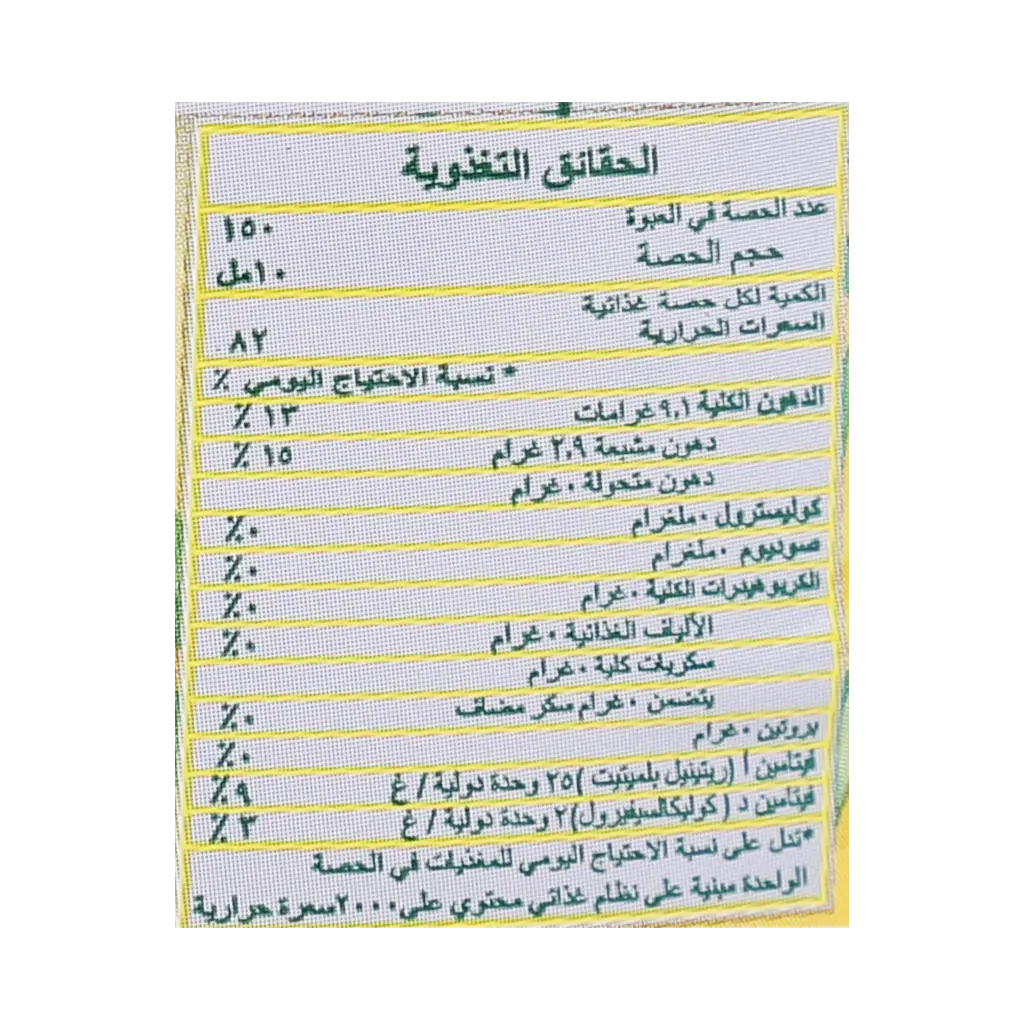 الحقائق التغذوية
عدد الحصة في العبوة ١٥٠
حجم الحصة ١٠مل
الكمية لكل حصة غذائية
السعرات الحرارية ٨٢
* نسبة الاحتياج اليومي ٪
الدهون الكلية ٩,١ غرامات ١٣ ٪
دهون مشبعة ٢,٩ غرام ١٥ ٪
دهون متحولة ٠ غرام
كوليسترول ٠ملغرام ٠٪
صوديوم ٠ملغرام ٠٪
الكربوهيدرات الكلية ٠ غرام ٠٪
الألياف الغذائية ٠ غرام ٠٪
سكريات كلية ٠ غرام
يتضمن ٠ غرام سكر مضاف ٠٪
بروتين ٠ غرام ٠٪
فيتامين أ (ريتينيل بلميتيت )٢٥ وحدة دولية / غ ٩٪
فيتامين د ( كوليكالسيفيرول)٢ وحدة دولية / غ ٣ ٪
*تدل على نسبة الاحتياج اليومي للمغذيات في الحصة
الواحدة مبنية على نظام غذائي محتوي على٢٠٠٠سعرة حرارية